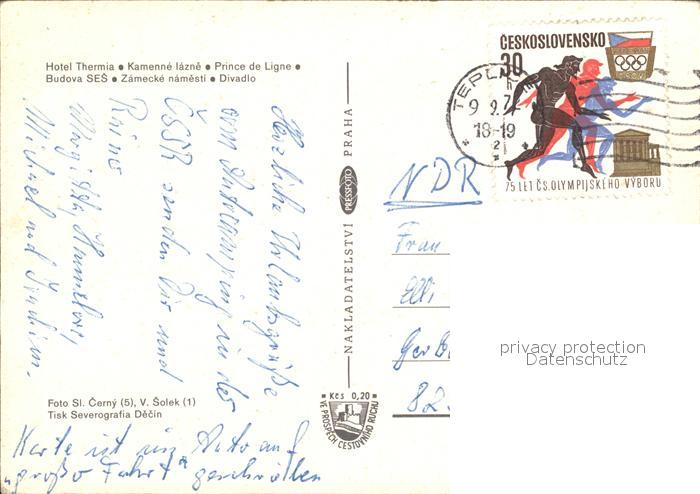 Hotel Thermia • Kamenné lázně • Prince de Ligne •
Budova SEŠ • Zámecké náměstí • Divadlo
Herzliche Urlaubsgrüße
vom Autocamping in der
ČSSR senden Dir und
Michael und
Foto Sl. Černý (5), V. Šolek (1)
Tisk Severografia Děčín
Karte ist im Auto auf
"großer Fahrt" geschrieben
NAKLADATELSTVÍ PRESSFOTO PRAHA
Kčs 0,20
VE PROSPĚCH CESTOVNÍHO RUCHU
ČESKOSLOVENSKO
30
h
75 LET ČS. OLYMPIJSKÉHO VÝBORU
TEPL
18-19
NDR
Frau
Elli
Ger
82
privacy protection
Datenschutz